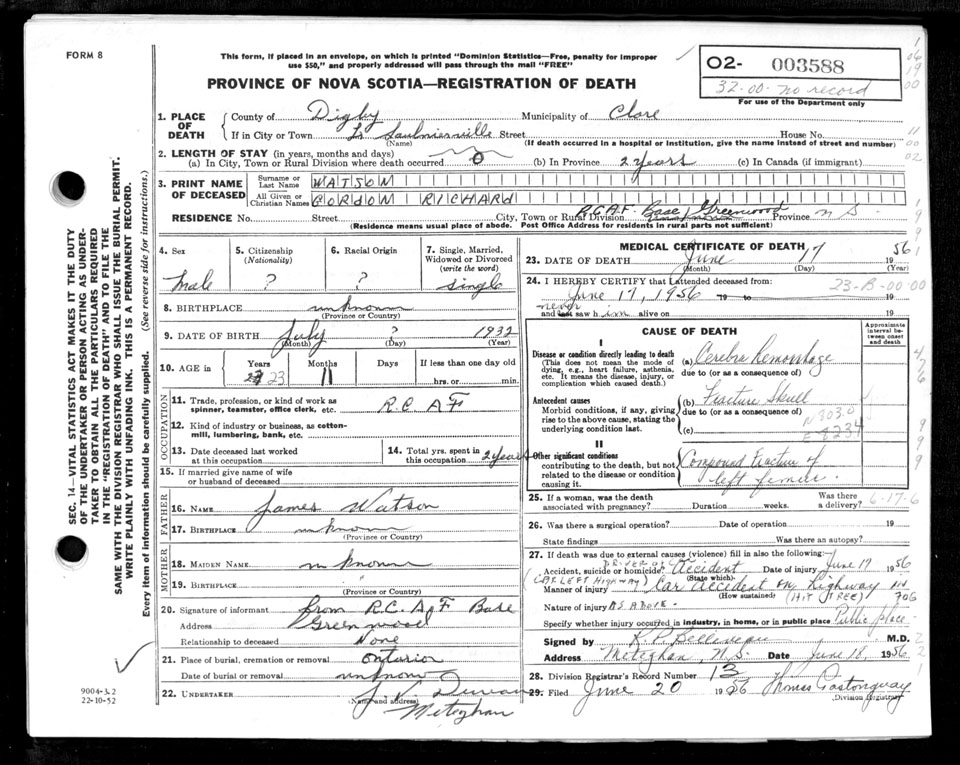 FORM 8
This form, if placed in an envelope, on which is printed "Dominion Statistics—Free, penalty for improper
use $50," and properly addressed will pass through the mail "FREE"
PROVINCE OF NOVA SCOTIA—REGISTRATION OF DEATH
O2- 003588
32-00- no record
For use of the Department only
1. PLACE OF DEATH
County of Digby Municipality of Clare
If in City or Town Lr Saulnierville Street House No.
(Name) (If death occurred in a hospital or institution, give the name instead of street and number)
2. LENGTH OF STAY (in years, months and days)
(a) In City, Town or Rural Division where death occurred 0 (b) In Province 2 years (c) In Canada (if immigrant)
3. PRINT NAME OF DECEASED
Surname or Last Name WATSON
All Given or Christian Names GORDON RICHARD
RESIDENCE No. Street City, Town or Rural Division R.C.A.F. Base, Greenwood Province N S.
(Residence means usual place of abode. Post Office Address for residents in rural parts not sufficient)
4. Sex
Male
5. Citizenship
(Nationality)
?
6. Racial Origin
?
7. Single, Married, Widowed or Divorced
(write the word)
single
8. BIRTHPLACE unknown
(Province or Country)
9. DATE OF BIRTH July ? 1932
(Month) (Day) (Year)
10. AGE in Years 23 Months 11 Days If less than one day old
hrs. or min.
OCCUPATION
11. Trade, profession, or kind of work as
spinner, teamster, office clerk, etc. R.C.A.F
12. Kind of industry or business, as cotton-
mill, lumbering, bank, etc.
13. Date deceased last worked
at this occupation
14. Total yrs. spent in
this occupation 2 years
15. If married give name of wife
or husband of deceased
FATHER
16. Name James Watson
17. Birthplace unknown
(Province or Country)
MOTHER
18. Maiden Name unknown
19. Birthplace
(Province or Country)
20. Signature of informant from R.C.A.F Base
Address Greenwood
Relationship to deceased None
21. Place of burial, cremation or removal Ontario
Date of burial or removal unknown
22. Undertaker
(Name and address)
Meteghan
MEDICAL CERTIFICATE OF DEATH
23. DATE OF DEATH June 17 1956
(Month) (Day) (Year)
24. I HEREBY CERTIFY that I attended deceased from:
June 17, 1956 19 to 19
never
and last saw him alive on 19
23-B-00-00
CAUSE OF DEATH
Approximate interval between onset and death
I
Disease or condition directly leading to death
(This does not mean the mode of
dying, e.g., heart failure, asthenia,
etc. It means the disease, injury, or
complication which caused death.)
(a) Cerebra Hemorrhage
due to (or as a consequence of)
Antecedent causes
Morbid conditions, if any, giving
rise to the above cause, stating the
underlying condition last.
(b) Fracture Skull
due to (or as a consequence of)
N803.0
(c) E 8234
II
Other significant conditions
contributing to the death, but not
related to the disease or condition
causing it.
Compound Fracture of
left femur.
25. If a woman, was the death
associated with pregnancy? Duration weeks. Was there a delivery?
6-17-6
26. Was there a surgical operation? Date of operation 19
State findings Was there an autopsy?
27. If death was due to external causes (violence) fill in also the following:
DRIVER OF CAR
Accident, suicide or homicide? Accident Date of injury June 17 1956
(State which)
(CAR LEFT HIGHWAY)
Manner of injury Car Accident on Highway
(How sustained) (HIT TREE)
Nature of injury AS ABOVE.
Specify whether injury occurred in industry, in home, or in public place Public place.
Signed by R. P. Belliveau M.D.
Address Meteghan, N.S. Date June 18, 1956
28. Division Registrar's Record Number 13
29. Filed June 20 1956 Thomas Castonguay
(Division Registrar)
SEC. 14—VITAL STATISTICS ACT MAKES IT THE DUTY
OF THE UNDERTAKER OR PERSON ACTING AS UNDER-
TAKER TO OBTAIN ALL THE PARTICULARS REQUIRED
IN THE "REGISTRATION OF DEATH" AND TO FILE THE
SAME WITH THE DIVISION REGISTRAR WHO SHALL ISSUE THE BURIAL PERMIT.
WRITE PLAINLY WITH UNFADING INK. THIS IS A PERMANENT RECORD.
Every item of information should be carefully supplied. (See reverse side for instructions.)
9004-3.2
22-10-52